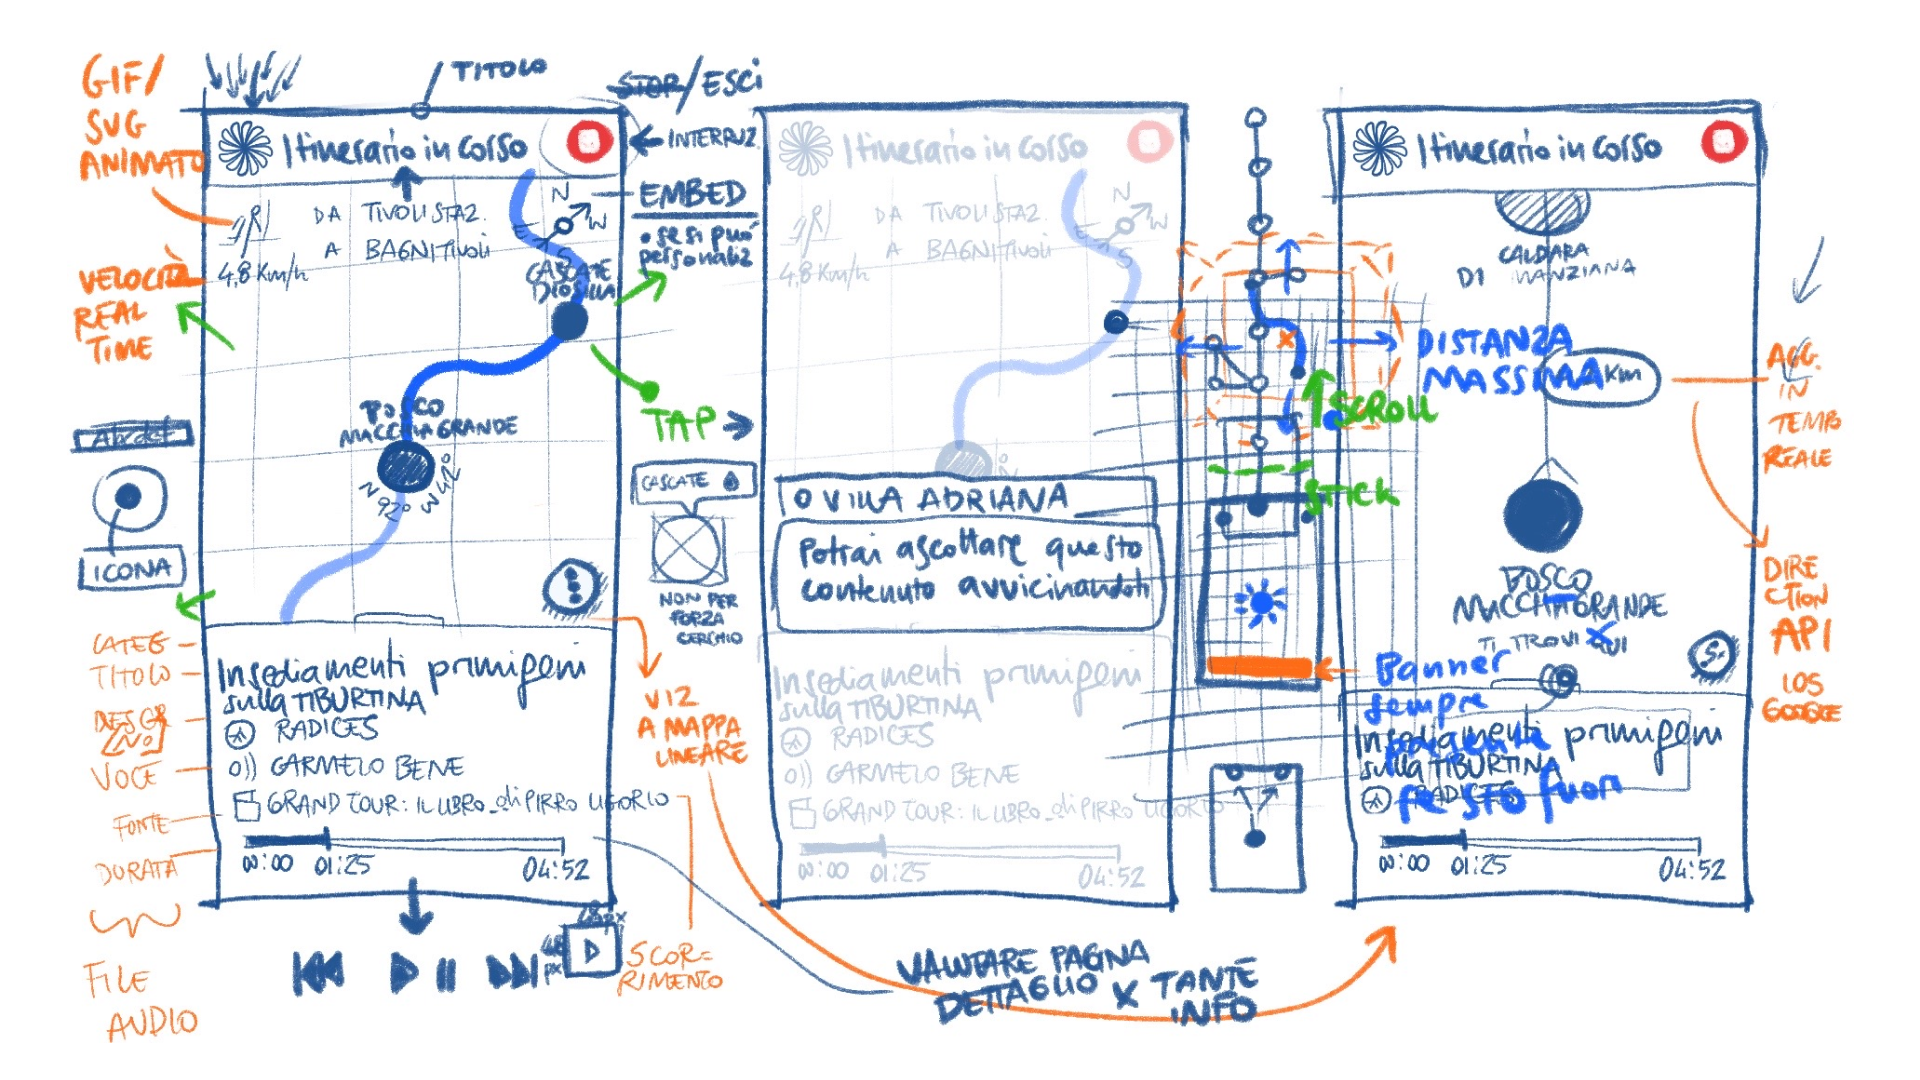 GIF/
SVG
ANIMATO
VELOCITÀ
REAL
TIME
ICONA
CATEG
TITOLO
DESCR
NO
VOCE
FONTE
DURATA
FILE
AUDIO
TITOLO
STOP/ESCI
INTERRUZ.
EMBED
• se si può
personaliz
Itinerario in corso
DA TIVOLI STAZ.
A BAGNI TIVOLI
4,8 Km/h
N
W
S
E
CASCATE
DIOSILLA
BOSCO
MACCHIA GRANDE
N 92° W 42°
TAP
CASCATE
NON PER
FORZA
CERCHIO
Insediamenti primigeni
sulla TIBURTINA
RADICES
CARMELO BENE
GRAND TOUR: IL LIBRO di PIRRO LIGORIO
00:00 01:25 04:52
48px
48
px
SCOR=
RIMENTO
VIZ
A MAPPA
LINEARE
VALUTARE PAGINA
DETTAGLIO X TANTE
INFO
Itinerario in corso
DA TIVOLI STAZ.
A BAGNI TIVOLI
4,8 Km/h
N
W
S
E
VILLA ADRIANA
Potrai ascoltare questo
contenuto avvicinandoti
Insediamenti primigeni
sulla TIBURTINA
RADICES
CARMELO BENE
GRAND TOUR: IL LIBRO di PIRRO LIGORIO
00:00 01:25 04:52
DISTANZA
MASSIMA
SCROLL
STICK
Banner
sempre
resto fuori
Itinerario in corso
CALDARA
DI MANZIANA
Km
BOSCO
MACCHIAGRANDE
TI TROVI QUI
Insediamenti primigeni
sulla TIBURTINA
RADICES
00:00 01:25 04:52
AGG.
IN
TEMPO
REALE
DIRE
CTION
API
IOS
GOOGLE